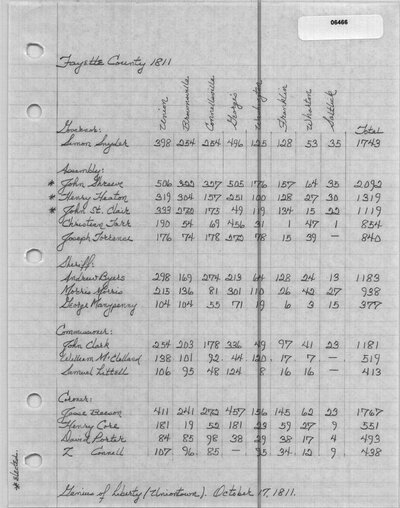 06466
Fayette County 1811
Union Brownsville Connellsville Georges Washington Franklin Wharton Saltlick
Governor: Total
Simon Snyder 398 254 254 496 125 128 53 35 1743
Assembly:
* John Shreeve 506 322 357 505 176 157 64 35 2092
* Henry Heaton 319 304 157 251 100 128 27 30 1319
* John St. Clair 333 220 173 49 119 134 15 22 1119
Christian Tarr 190 54 69 456 31 1 47 1 854
Joseph Torrence 176 74 178 272 78 15 39 — 840
Sheriff:
Andrew Byers 298 169 274 213 64 128 24 13 1183
Morris Morris 213 136 81 301 110 26 42 27 938
George Manypenny 104 104 55 71 19 6 3 15 377
Commissioner:
John Clark 254 203 178 336 49 97 41 23 1181
William McClelland 138 101 92 44 120 17 7 — 519
Samuel Littell 106 95 48 124 8 16 16 — 413
Coroner:
Jesse Beeson 411 241 272 457 156 145 62 23 1767
Henry Core 181 19 52 181 23 59 27 9 551
David Porter 84 85 98 38 29 38 17 4 493
Z Connell 107 96 85 — 95 34 12 9 438
*elected.
Genius of Liberty (Uniontown). October 17, 1811.